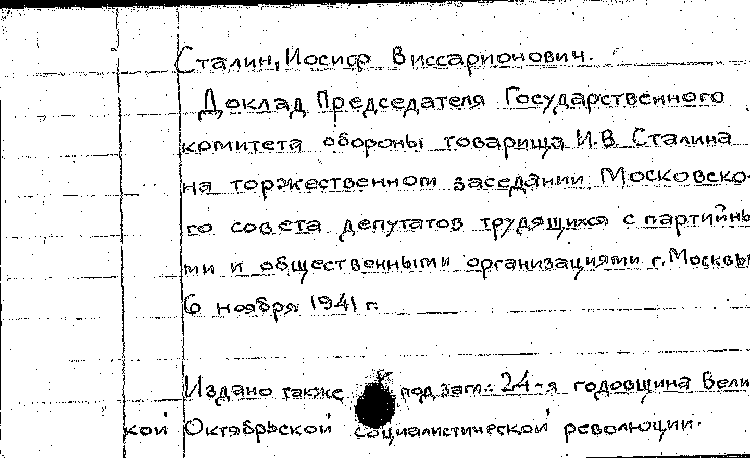 Сталин, Иосиф Виссарионович.
Доклад Председателя Государственного
комитета обороны товарища И.В. Сталина
на торжественном заседании Московско-
го совета депутатов трудящихся с партийны-
ми и общественными организациями г. Москвы
6 ноября 1941 г.
Издано также под загл.: 24-я годовщина Вели-
кой Октябрьской социалистической революции.